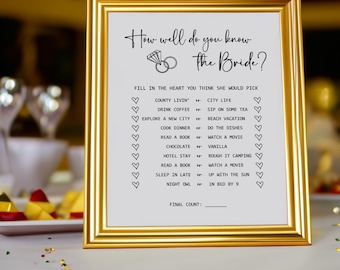 How well do you know
the Bride?
FILL IN THE HEART YOU THINK SHE WOULD PICK
COUNTY LIVIN' or CITY LIFE
DRINK COFFEE or SIP ON SOME TEA
EXPLORE A NEW CITY or BEACH VACATION
COOK DINNER or DO THE DISHES
READ A BOOK or WATCH A MOVIE
CHOCOLATE or VANILLA
HOTEL STAY or ROUGH IT CAMPING
READ A BOOK or WATCH A MOVIE
SLEEP IN LATE or UP WITH THE SUN
NIGHT OWL or IN BED BY 9
FINAL COUNT: ______